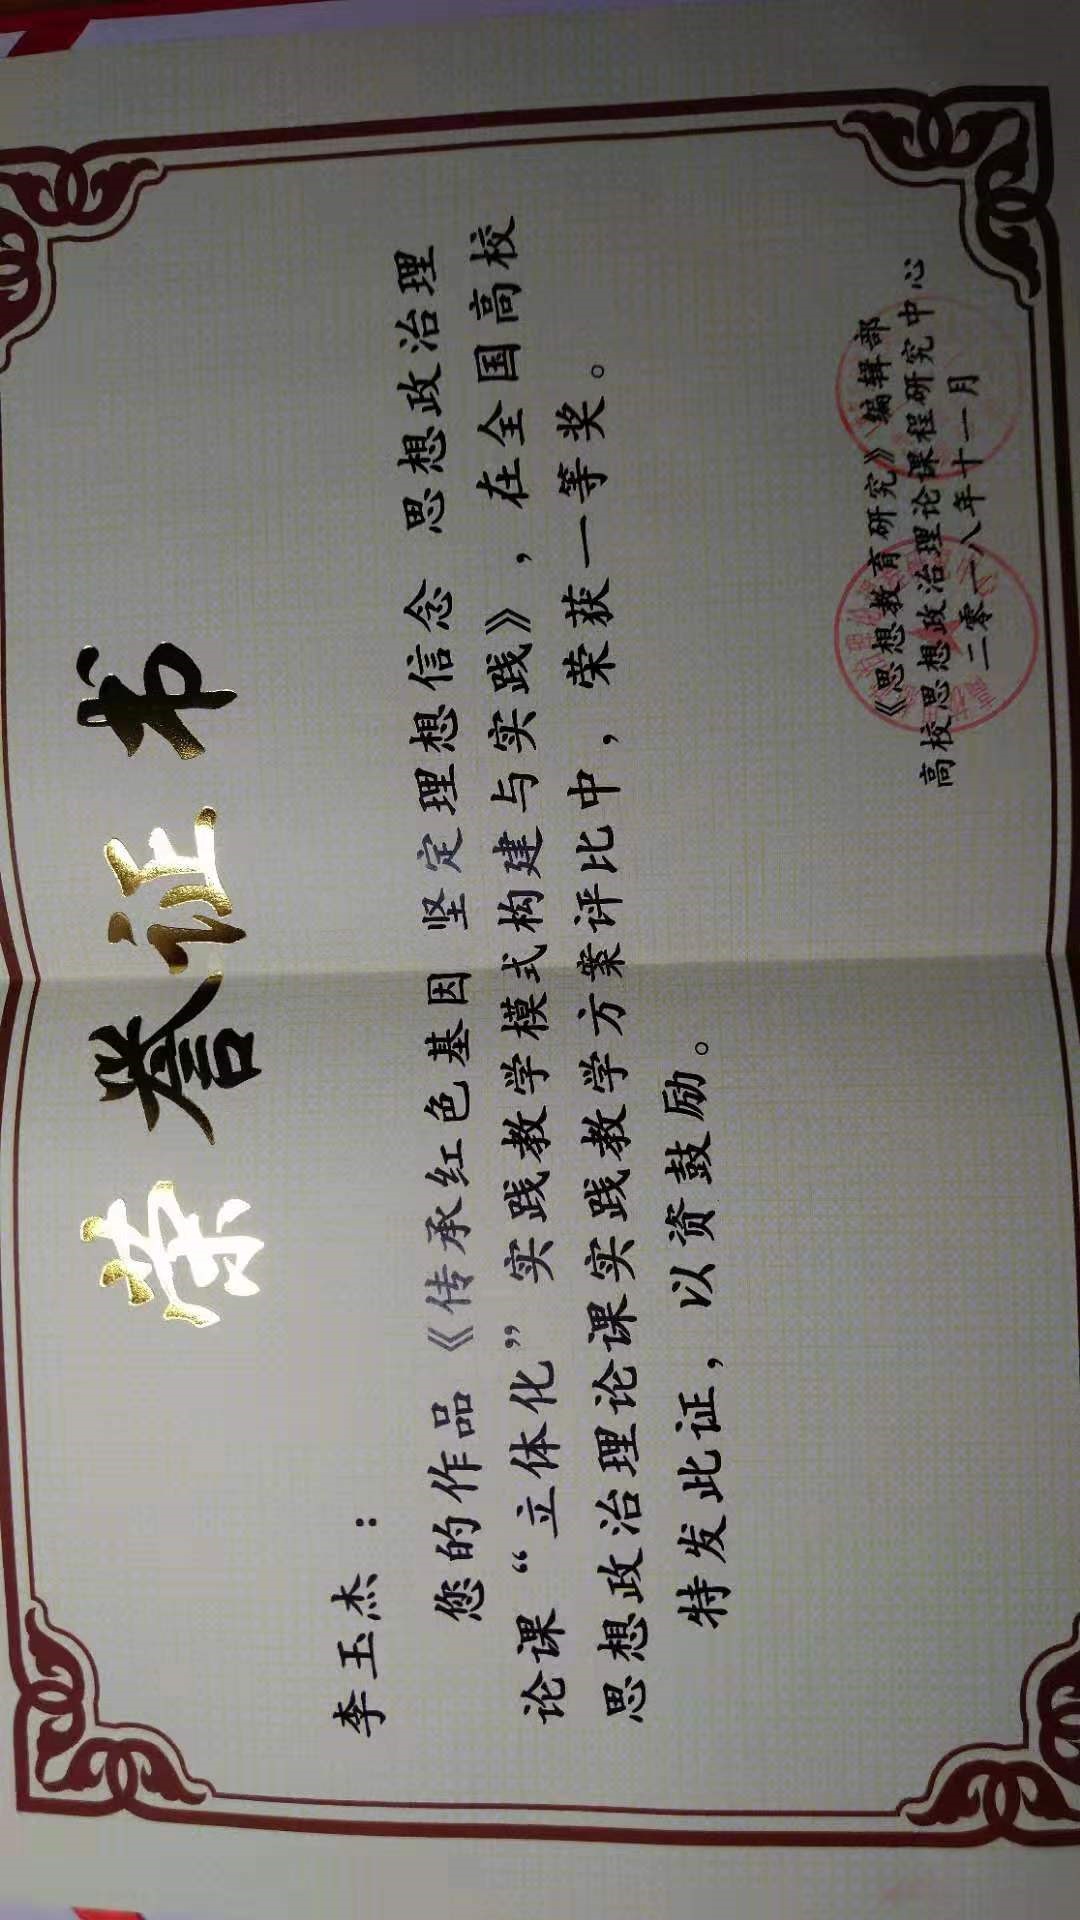 荣誉证书
李玉杰：
您的作品《传承红色基因 坚定理想信念 思想政治理
论课“立体化”实践教学模式构建与实践》，在全国高校
思想政治理论课实践教学方案评比中，荣获一等奖。
特发此证，以资鼓励。
《思想教育研究》编辑部
高校思想政治理论课程研究中心
二零一八年十一月